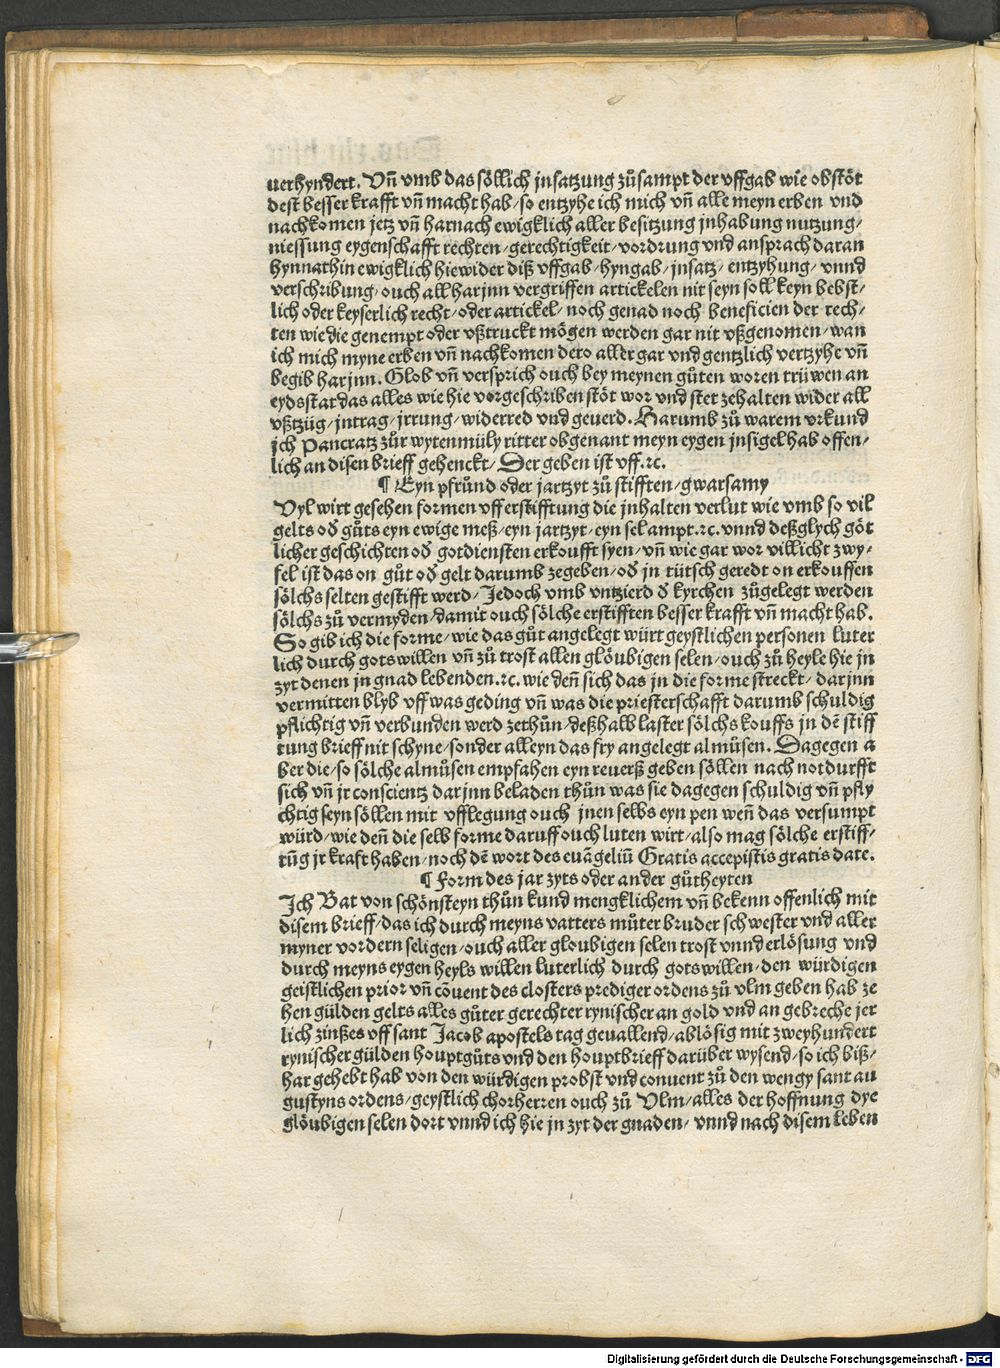 uerhyndert. Vn̄ vmb das söllich jnsatzung zůsampt der vffgab wie obstöt
dest besser krafft vn̄ macht hab/ so entzyhe ich mich vn̄ alle meyn erben vnd
nachkomen jetz vn̄ harnach ewigklich aller besitzung jnhabung nutzung/
niessung eygenschafft rechten/ gerechtigkeit/ vordrung vnd ansprach daran
hynnathin ewigklich hiewider diß vffgab/ hyngab/ jnsatz/ entzyhung/ vnnd
verschribung/ ouch all harjnn vergriffen artickelen nit seyn soll keyn bebst/
lich oder keyserlich recht/ oder artickel/ noch genad noch beneficien der rech/
ten wie die genempt oder vßtruckt mögen werden gar nit vßgenomen/ wan
ich mich myne erben vn̄ nachkomen dero aller gar vnd gentzlich vertzyhe vn̄
begib harjnn. Glob vn̄ versprich ouch bey meynen gůten woren trüwen an
eydsstat das alles wie hie vorgeschriben stöt wor vnd stet zehalten wider all
vßtzüg/ jntrag/ jrrung/ widerred vnd geuerd. Harumb zů warem vrkund
jch Pancratz zůr wytenmüly ritter obgenant meyn eygen jnsigel hab offen/
lich an disen brieff gehenckt/ Der geben ist vff.⁊c.
¶ Eyn pfrůnd oder jartzyt zů stifften/ gwarsamy
Vyl wirt gesehen formen vff erstifftung die jnhalten verlut wie vmb so vil
gelts od̕ gůts eyn ewige meß/ eyn jartzyt/ eyn sel ampt.⁊c. vnnd deßglych göt
licher geschichten od̕ gotdiensten erkoufft syen/ vn̄ wie gar wor villicht zwy/
fel ist das on gůt od̕ gelt darumb zegeben/ od̕ jn tütsch geredt on erkouffen
sölchs selten gestifft werd/ Jedoch vmb vntzierd d̕ kyrchen zůgelegt werden
sölchs zů vermyden/ damit ouch sölche erstifften besser krafft vn̄ macht hab.
So gib ich die forme/ wie das gůt angelegt würt geystlichen personen luter
lich durch gots willen vn̄ zů trost allen glöubigen selen/ ouch zů heyle hie jn
zyt denen jn gnad lebenden.⁊c. wie den̄ sich das jn die forme streckt/ darjnn
vermitten blyb vff was geding vn̄ was die priesterschafft darumb schuldig
pflichtig vn̄ verbunden werd zethůn/ deßhalb laster sölchs kouffs jn dē stiff
tung brieff nit schyne/ sonder alleyn das fry angelegt almůsen. Dagegen a
ber die/ so sölche almůsen empfahen eyn reuerß geben söllen nach notdurfft
sich vn̄ jr conscientz darjnn beladen thůn was sie dagegen schuldig vn̄ pfly
chtig seyn söllen mit vfflegung ouch jnen selbs eyn pen wen̄ das versumpt
würd/ wie den̄ die selb forme daruff ouch luten wirt/ also mag sölche erstiff/
tūg jr kraft haben/ noch dē wort des euāgeliū Gratis accepistis gratis date.
¶ Form des jar zyts oder ander gůtheyten
Ich Bat von schönsteyn thůn kund mengklichem vn̄ bekenn offenlich mit
disem brieff/ das ich durch meyns vatters můter bruder schwester vnd aller
myner vordern seligen/ ouch aller gloubigen selen trost vnnd erlösung vnd
durch meyns eygen heyls willen luterlich durch gots willen/ den würdigen
geistlichen prior vn̄ cōuent des closters prediger ordens zů vlm geben hab ze
hen gülden gelts alles gůter gerechter rynischer an gold vnd an gebreche jer
lich zinßes vff sant Jacob apostels tag geuallend/ ablösig mit zweyhundert
rynischer gülden houptgůts vnd den houptbrieff darüber wysend/ so ich biß/
har gehebt hab von den würdigen probst vnd conuent zů den wengy sant au
gustyns ordens/ geystlich chorherren ouch zů Vlm/ alles der hoffnung dye
glöubigen selen dort vnnd ich hie jn zyt der gnaden/ vnnd nach disem leben
Digitalisierung gefördert durch die Deutsche Forschungsgemeinschaft - DFG